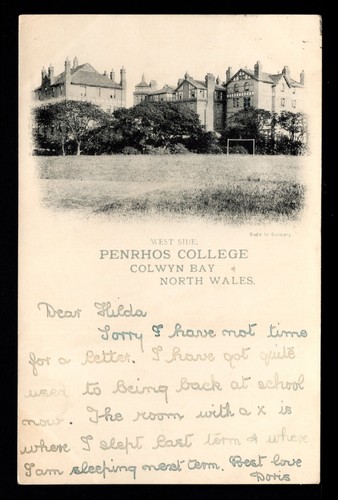 WEST SIDE.
Made in Germany.
PENRHOS COLLEGE
COLWYN BAY
NORTH WALES.
Dear Hilda
Sorry I have not time
for a letter. I have got quite
used to being back at school
now. The room with a x is
where I slept last term & where
I am sleeping next term. Best love
Doris